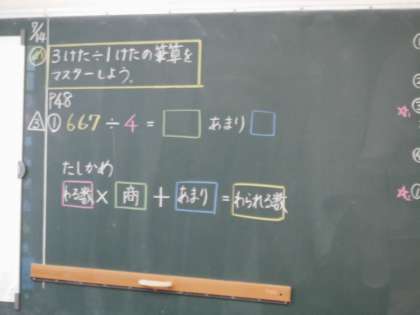 7/14
め 3けた÷1けたの筆算を
マスターしよう。
P48
③ ① 667 ÷ 4 = □ あまり □
たしかめ
わる数 × 商 + あまり = わられる数